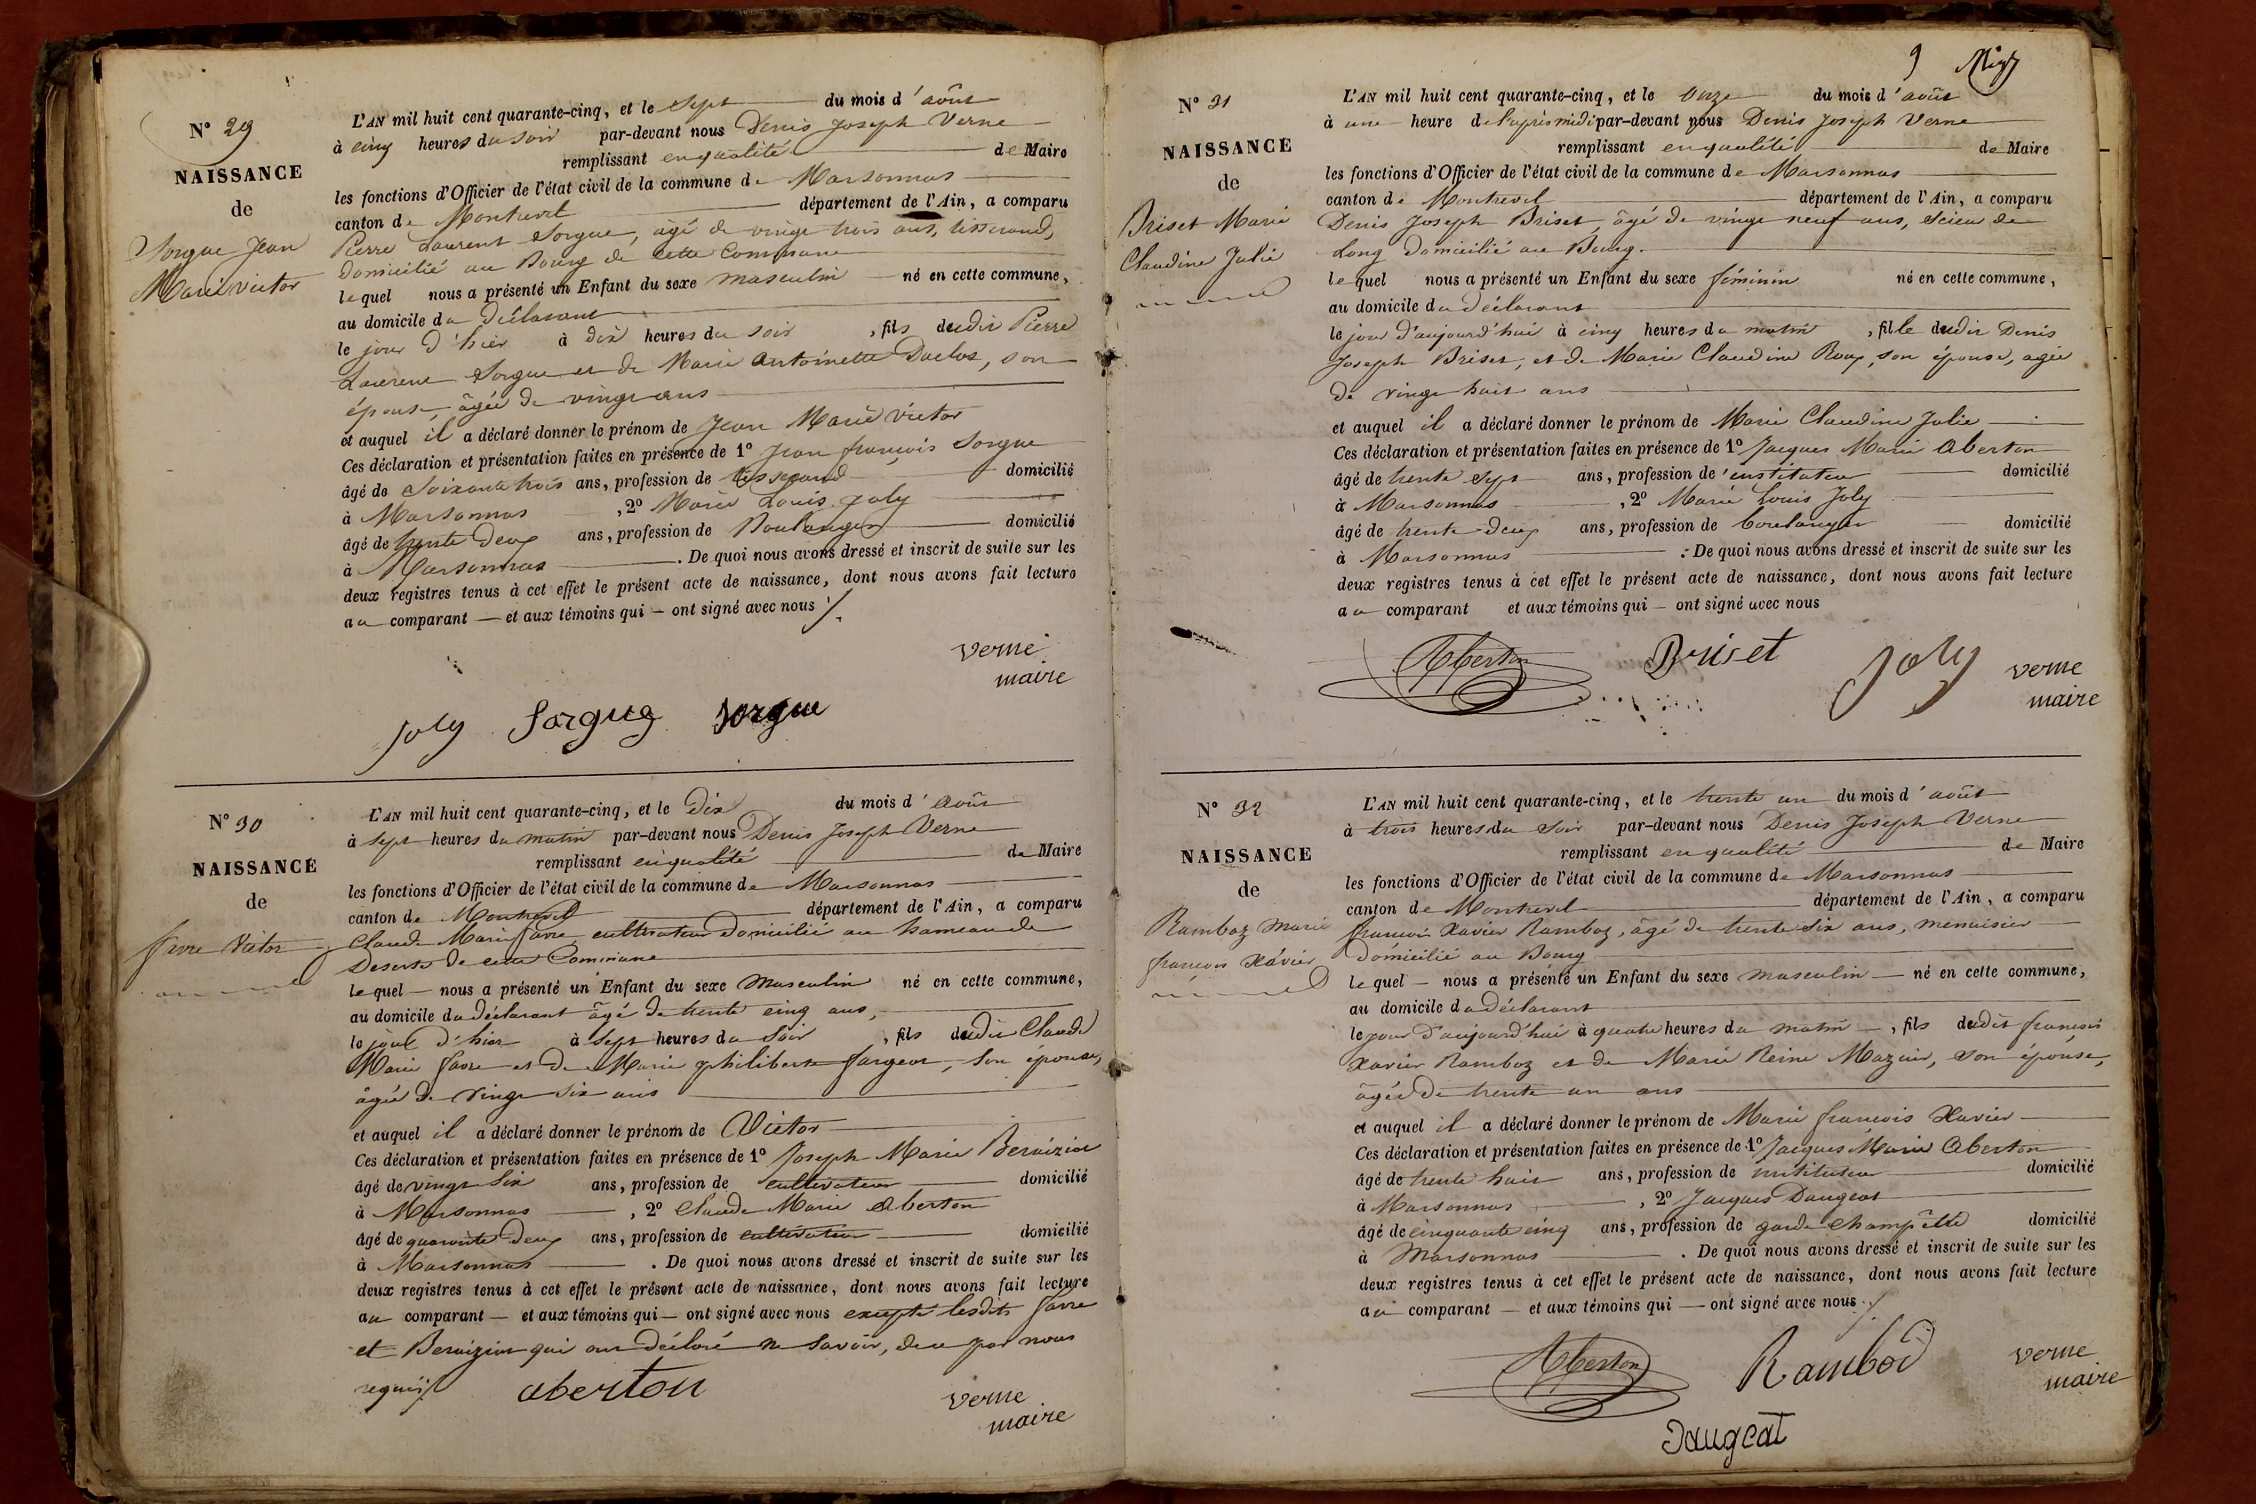 N° 29
NAISSANCE
de
Sorgue Jean
Marie victor
L'AN mil huit cent quarante-cinq, et le Sept du mois d'août
à cinq heures du soir par-devant nous Denis Joseph Verne
remplissant en qualité de Maire
les fonctions d'Officier de l'état civil de la commune de Marsonnas
canton de Montrevel département de l'Ain, a comparu
Pierre Laurent Sorgue, âgé de vingt trois ans, tisserand,
domicilié au Bourg de cette Commune
lequel nous a présenté un Enfant du sexe masculin né en cette commune,
au domicile du déclarant
le jour d'hier à dix heures du soir, fils dudit Pierre
Laurent Sorgue et de Marie Antoinette Duclos, son
épouse, âgée de vingt ans
et auquel il a déclaré donner le prénom de Jean Marie Victor
Ces déclaration et présentation faites en présence de 1° Jean françois Sorgue
âgé de Soixante trois ans, profession de tisserand domicilié
à Marsonnas, 2° Marie Louis Joly
âgé de trente deux ans, profession de Boulanger domicilié
à Marsonnas. De quoi nous avons dressé et inscrit de suite sur les
deux registres tenus à cet effet le présent acte de naissance, dont nous avons fait lecture
au comparant — et aux témoins qui — ont signé avec nous ./.
verne
maire
Joly Sorgue Sorgue
N° 30
NAISSANCE
de
favre Victor
L'AN mil huit cent quarante-cinq, et le Dix du mois d'Août
à sept heures du matin par-devant nous Denis Joseph Verne
remplissant en qualité de Maire
les fonctions d'Officier de l'état civil de la commune de Marsonnas
canton de Montrevel département de l'Ain, a comparu
Claude Marie favre cultivateur domicilié au hameau de
Deserts de cette Commune
lequel — nous a présenté un Enfant du sexe Masculin né en cette commune,
au domicile du déclarant âgé de trente cinq ans,
le jour d'hier à sept heures du Soir, fils dudit Claude
Marie favre et de Marie philiberte fargeot, Son épouse,
âgée de vingt Six ans
et auquel il a déclaré donner le prénom de Victor
Ces déclaration et présentation faites en présence de 1° Joseph Marie
âgé de vingt Six ans, profession de cultivateur domicilié
à Marsonnas, 2° Claude Marie Aberton
âgé de quarante deux ans, profession de cultivateur domicilié
à Marsonnas. De quoi nous avons dressé et inscrit de suite sur les
deux registres tenus à cet effet le présent acte de naissance, dont nous avons fait lecture
au comparant — et aux témoins qui — ont signé avec nous excepté lesdits favre
et qui ont déclaré ne savoir, de ce par nous
requis ./.
aberton
verne
maire
9
N° 31
NAISSANCE
de
Briset Marie
Claudine Julie
L'AN mil huit cent quarante-cinq, et le Onze du mois d'août
à une heure de l'après midi par-devant nous Denis Joseph Verne
remplissant en qualité de Maire
les fonctions d'Officier de l'état civil de la commune de Marsonnas
canton de Montrevel département de l'Ain, a comparu
Denis Joseph Briset, âgé de vingt neuf ans, Scieur de
Long domicilié au Bourg.
lequel nous a présenté un Enfant du sexe féminin né en cette commune,
au domicile du déclarant
le jour d'aujourd'hui à cinq heures du matin, fille dudit Denis
Joseph Briset, et de Marie Claudine Roux, son épouse, agée
de vingt huit ans
et auquel il a déclaré donner le prénom de Marie Claudine Julie
Ces déclaration et présentation faites en présence de 1° Jacques Marie Aberton
âgé de trente Sept ans, profession d'instituteur domicilié
à Marsonnas, 2° Marie Louis Joly
âgé de trente deux ans, profession de boulanger domicilié
à Marsonnas. De quoi nous avons dressé et inscrit de suite sur les
deux registres tenus à cet effet le présent acte de naissance, dont nous avons fait lecture
au comparant et aux témoins qui — ont signé avec nous
Aberton Briset Joly verne
maire
N° 32
NAISSANCE
de
Ramboz Marie
françois Xavier
L'AN mil huit cent quarante-cinq, et le trente un du mois d'août
à trois heures du Soir par-devant nous Denis Joseph Verne
remplissant en qualité de Maire
les fonctions d'Officier de l'état civil de la commune de Marsonnas
canton de Montrevel département de l'Ain, a comparu
françois Xavier Ramboz, âgé de trente Six ans, menuisier
domicilié au Bourg
lequel — nous a présenté un Enfant du sexe masculin — né en cette commune,
au domicile du déclarant
le jour d'aujourd'hui à quatre heures du matin —, fils dudit françois
Xavier Ramboz et de Marie Reine Mazuir, son épouse,
âgée de trente un ans
et auquel il a déclaré donner le prénom de Marie françois Xavier
Ces déclaration et présentation faites en présence de 1° Jacques Marie Aberton
âgé de trente huit ans, profession de instituteur domicilié
à Marsonnas, 2° Jacques Daugeat
âgé de cinquante cinq ans, profession de garde champêtre domicilié
à Marsonnas. De quoi nous avons dressé et inscrit de suite sur les
deux registres tenus à cet effet le présent acte de naissance, dont nous avons fait lecture
au comparant — et aux témoins qui — ont signé avec nous ./.
Aberton Rambod verne
maire
Daugeat